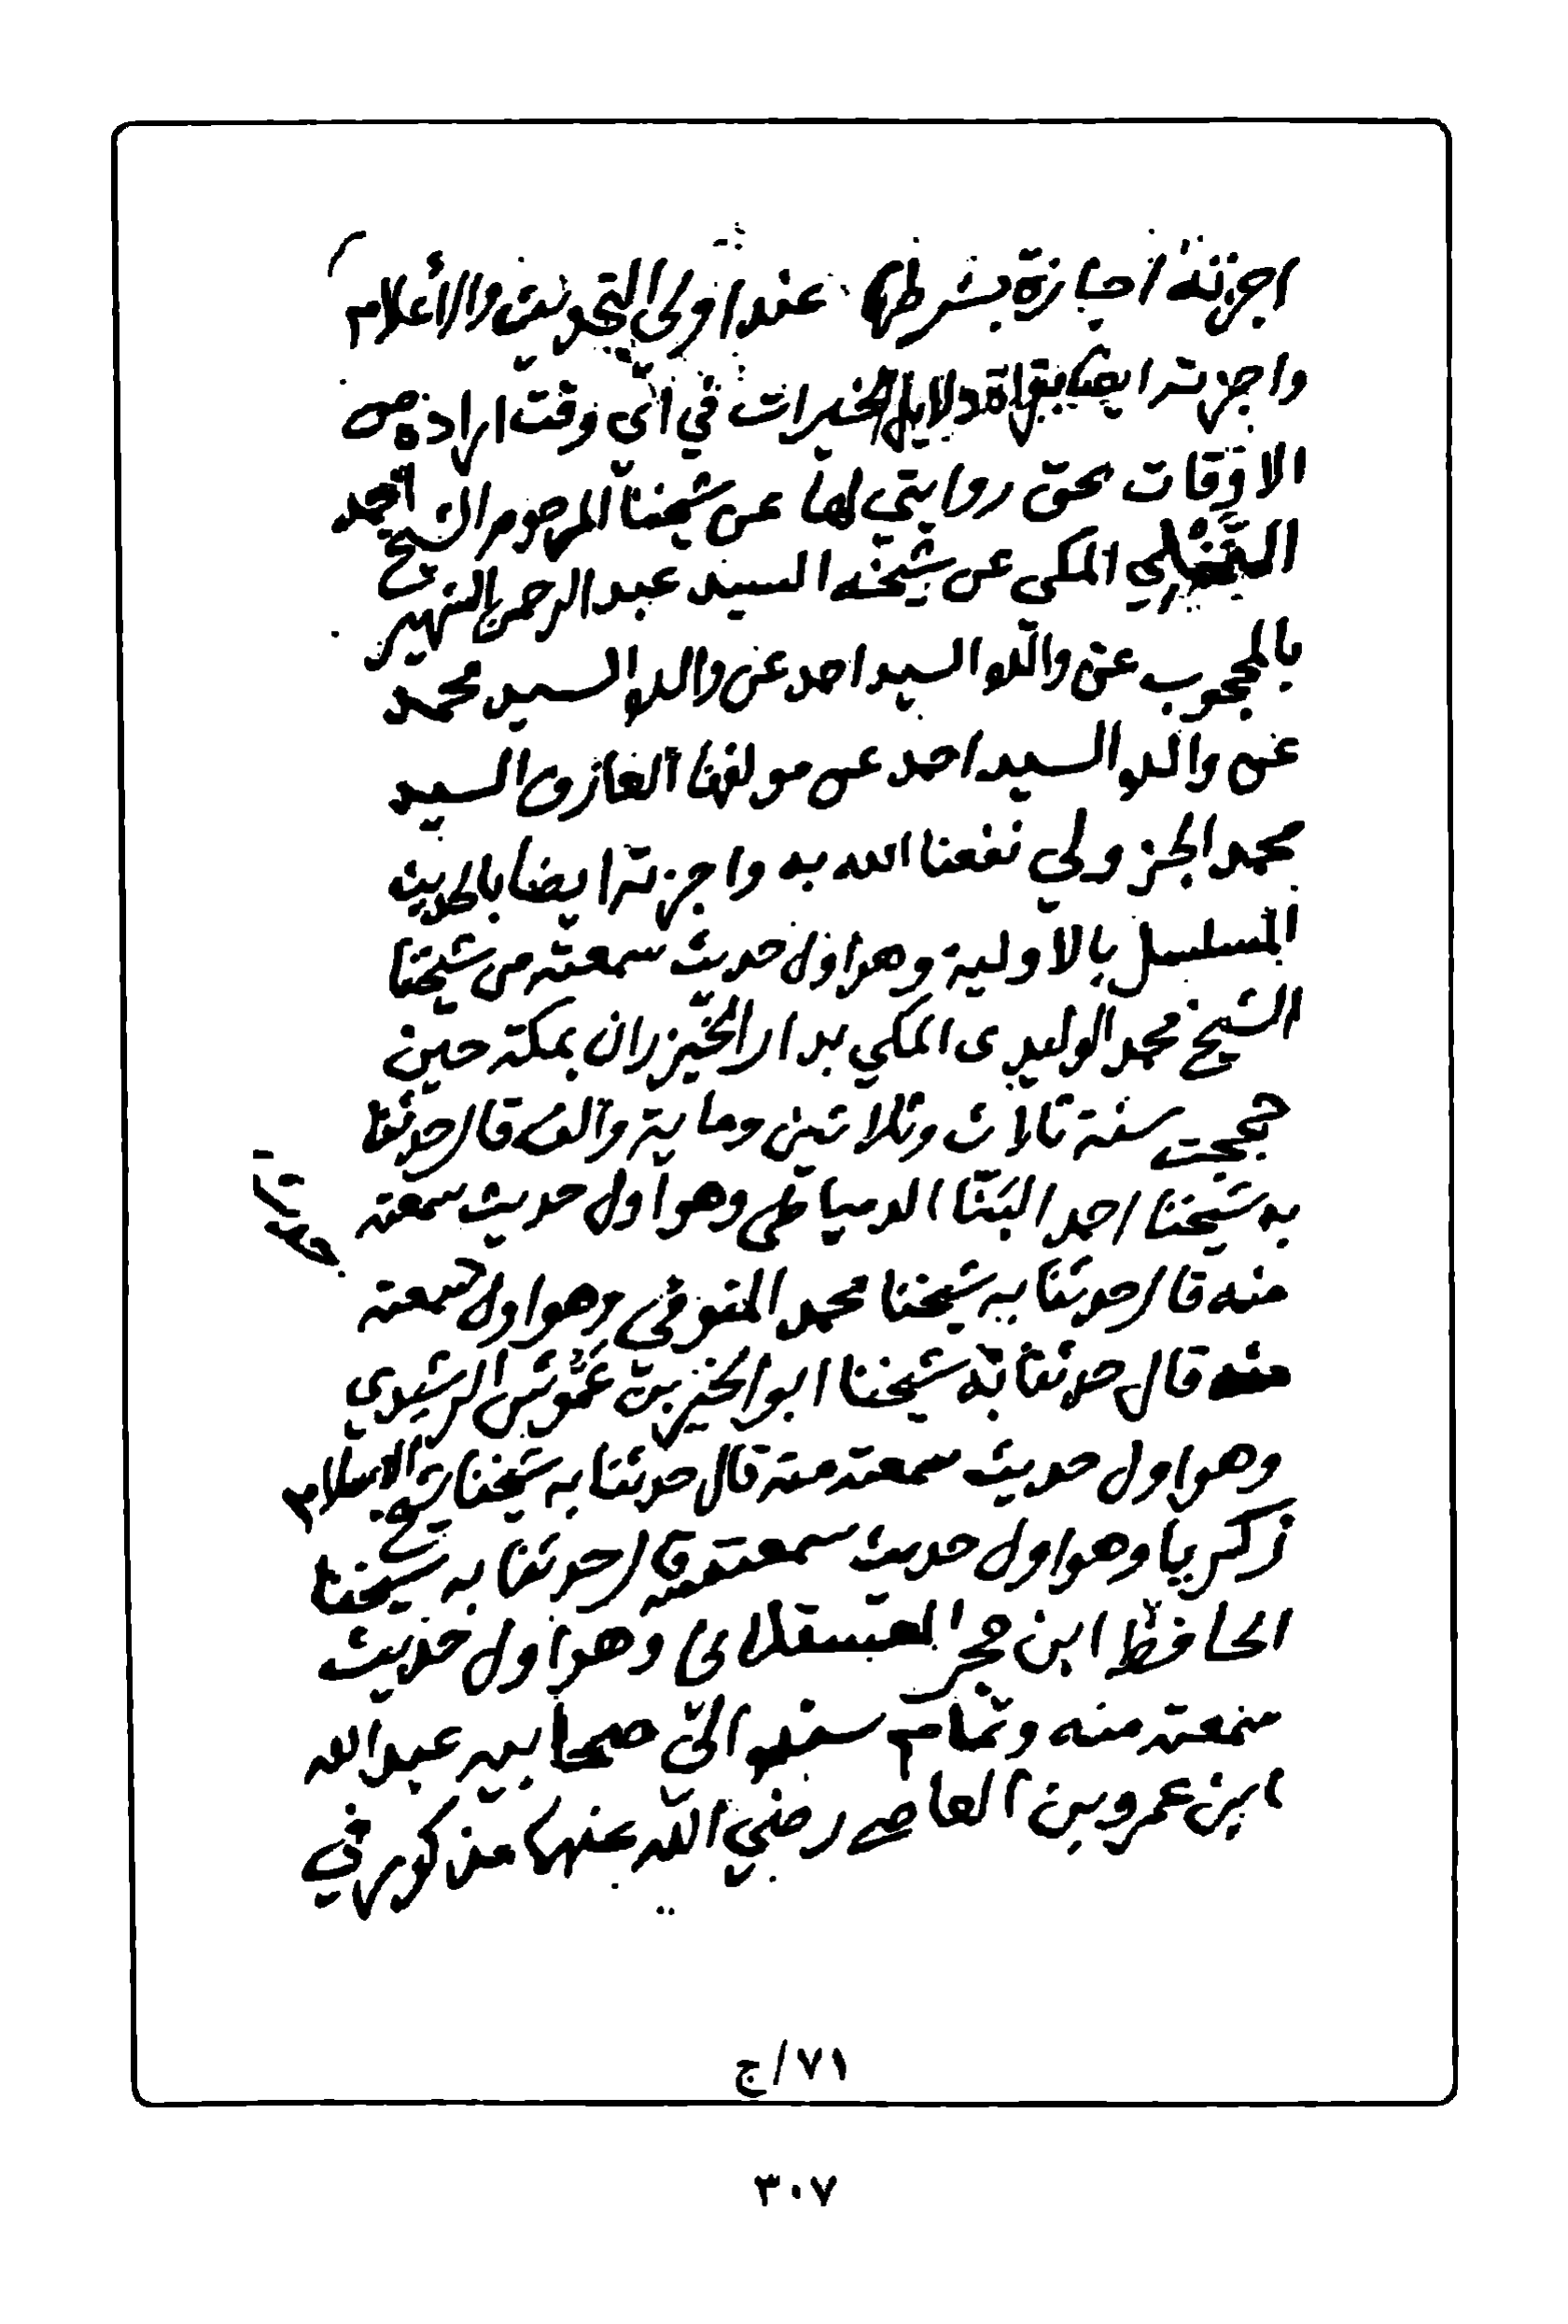 اجزته اجازة بشرطها عند اولي التحديث والاعلام
واجزته ايضا بقراة دلايل الخيرات في اي وقت اراده من
الاوقات بحق روايتي لها عن شيخنا المرحوم الشيخ احمد
المكي عن شيخه السيد عبد الرحمن الشهير
بالمحجوب عن والده السيد احمد عن والده السيد محمد
عن والده السيد احمد عن مولفها العارف السيد
محمد الجزولي نفعنا الله به واجزته ايضا بالحديث
المسلسل بالاولية وهو اول حديث سمعته من شيخنا
الشيخ محمد الوليدي المكي بدار الخيزران بمكة حين
حججت سنة ثلاث وثلاثين وماية والف قال حدثنا
به شيخنا احمد البنا الدمياطي وهو اول حديث سمعته
منه قال حدثنا به شيخنا محمد المنوفي وهو اول سمعته
حديث
منه قال حدثنا به شيخنا ابو الخير بن عموش الرشيدي
وهو اول حديث سمعته منه قال حدثنا به شيخنا شيخ الاسلام
زكريا وهو اول حديث سمعته منه قال حدثنا به شيخنا
الحافظ ابن حجر العسقلاني وهو اول حديث
سمعته منه وتمام سنده الى صحابيه عبد الله
ابن عمرو بن العاص رضي الله عنهما مذكور في
٧١/ج
٣٠٧